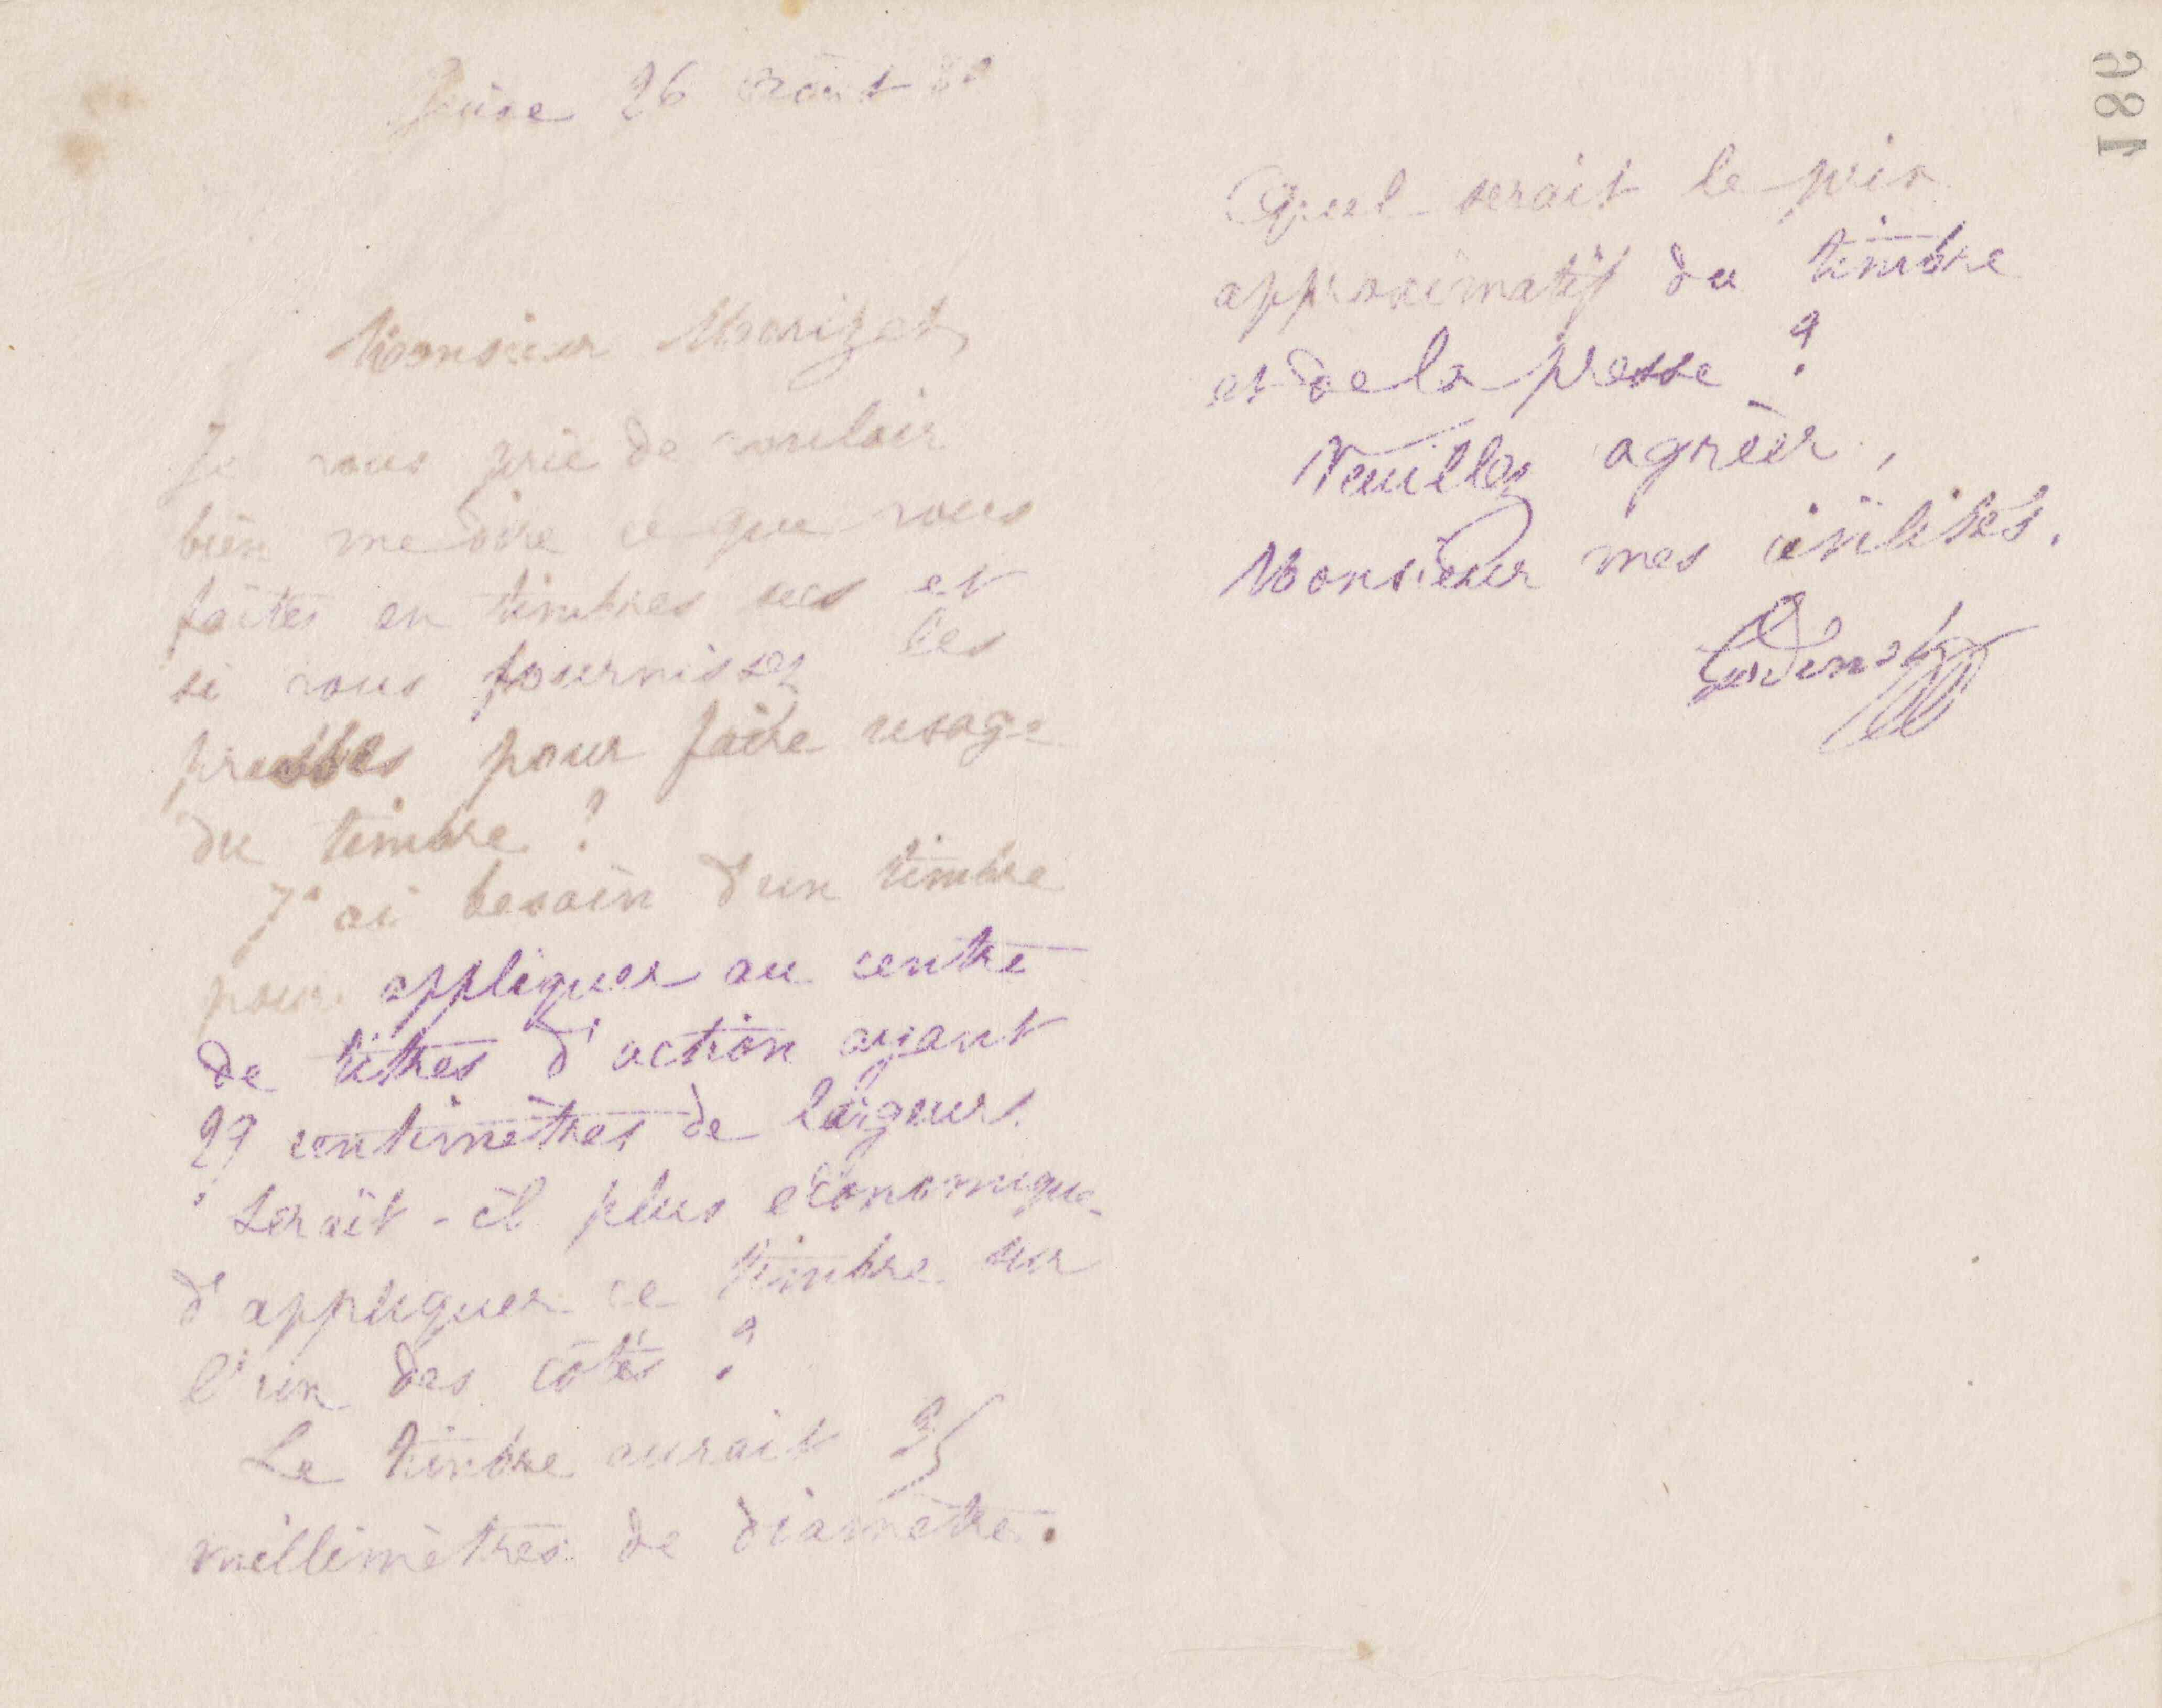 Guise 26 août 80
Monsieur Morizet
Je vous prie de vouloir
bien me dire ce que vous
faites en timbres secs et
si vous fournissez les
presses pour faire usage
du timbre ?
J'ai besoin d'un timbre
pour appliquer au centre
de titres d'action ayant
29 centimètres de largeur.
Serait-il plus économique
d'appliquer ce timbre sur
l'un des côtés ?
Le timbre aurait 35
millimètres de diamètre.
Quel serait le prix
approximatif du timbre
et de la presse ?
Veuillez agréer,
Monsieur mes civilités.
Godin
186